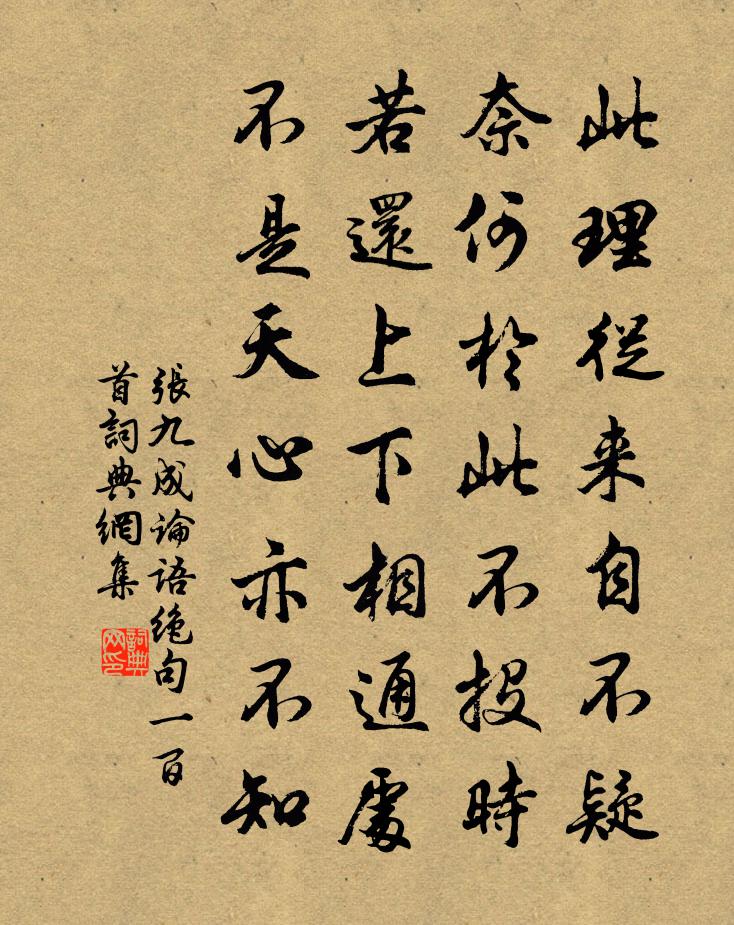 此理從来自不疑
奈何於此不投時
若還上下相通處
不是天心亦不知
張九成論語絶句一百
首詞典網集
詞典
网印